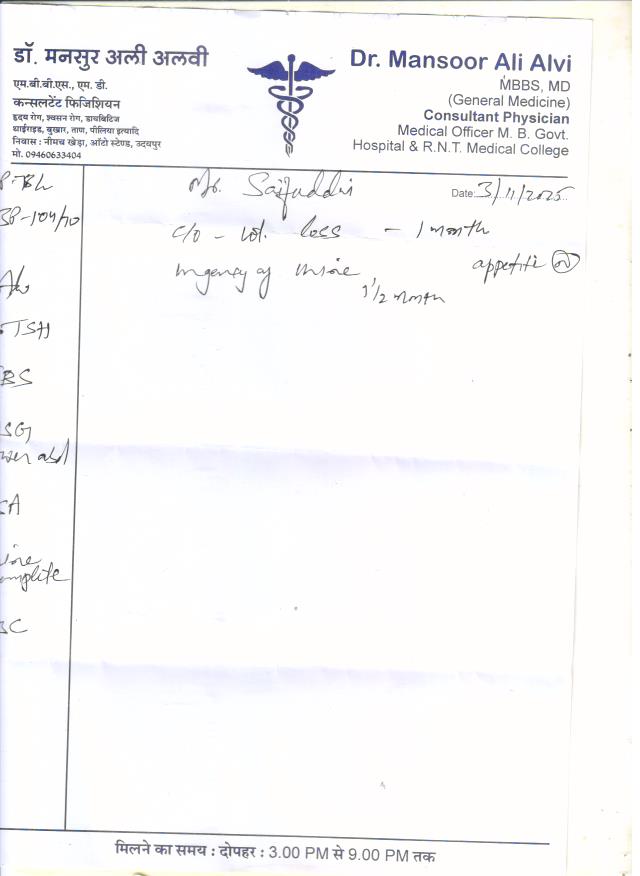 डॉ. मनसुर अली अलवी
एम.बी.बी.एस., एम. डी.
कन्सलटेंट फिजिशियन
हृदय रोग, श्वसन रोग, डायबिटिज
थाईराइड, बुखार, ताण, पीलिया इत्यादि
निवास : नीमच खेड़ा, ऑटो स्टेण्ड, उदयपुर
मो. 09460633404
Dr. Mansoor Ali Alvi
MBBS, MD
(General Medicine)
Consultant Physician
Medical Officer M. B. Govt.
Hospital & R.N.T. Medical College
Saifuddin
Date: 3/11/2025
c/o - wt. loss - 1 month
urgency of urine appetite (N)
1 1/2 month
BP-104/70
TSH
BS
SG
wer abd
SA
rine
omplete
BC
मिलने का समय : दोपहर : 3.00 PM से 9.00 PM तक